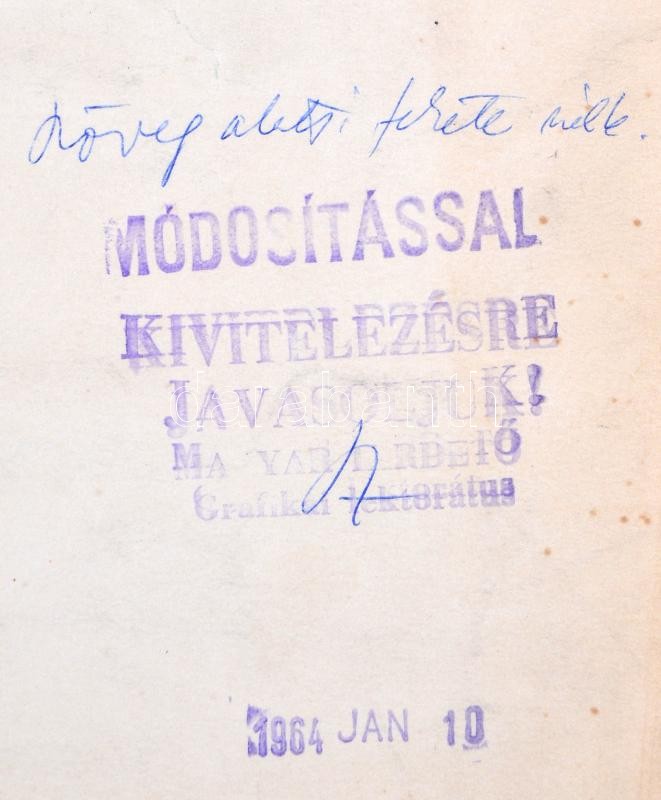 szöveg alatti fekete nélk.
MÓDOSÍTÁSSAL
KIVITELEZÉSRE
JAVASOLJUK!
MAGYAR HIRDETŐ
Grafikai lektorátus
darabanth
1964 JAN 10